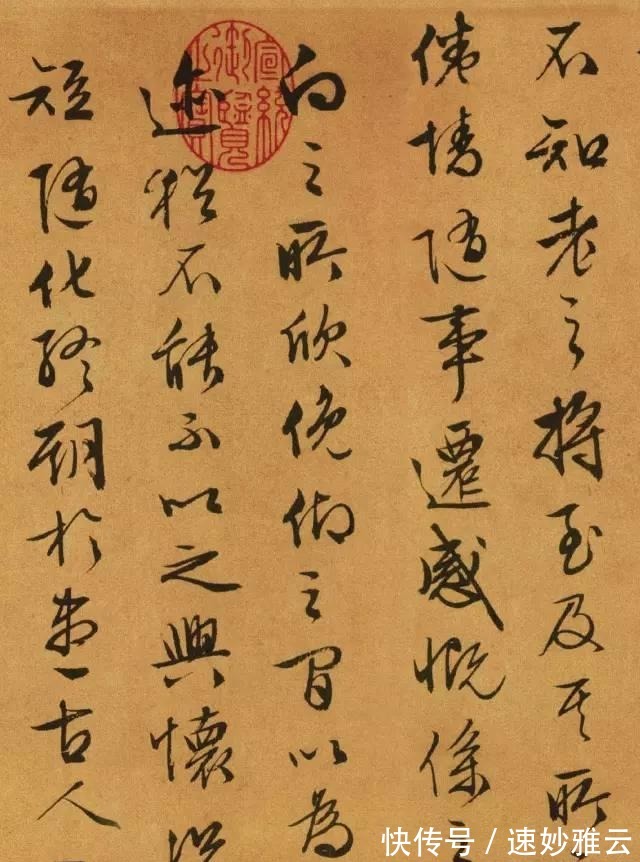 不知老之將至及其所
倦情隨事遷感慨係之
向之所欣俛仰之間以為
迹猶不能不以之興懷況
短隨化終期於盡古人
宣統御覽之寶
快传号 / 速妙雅云